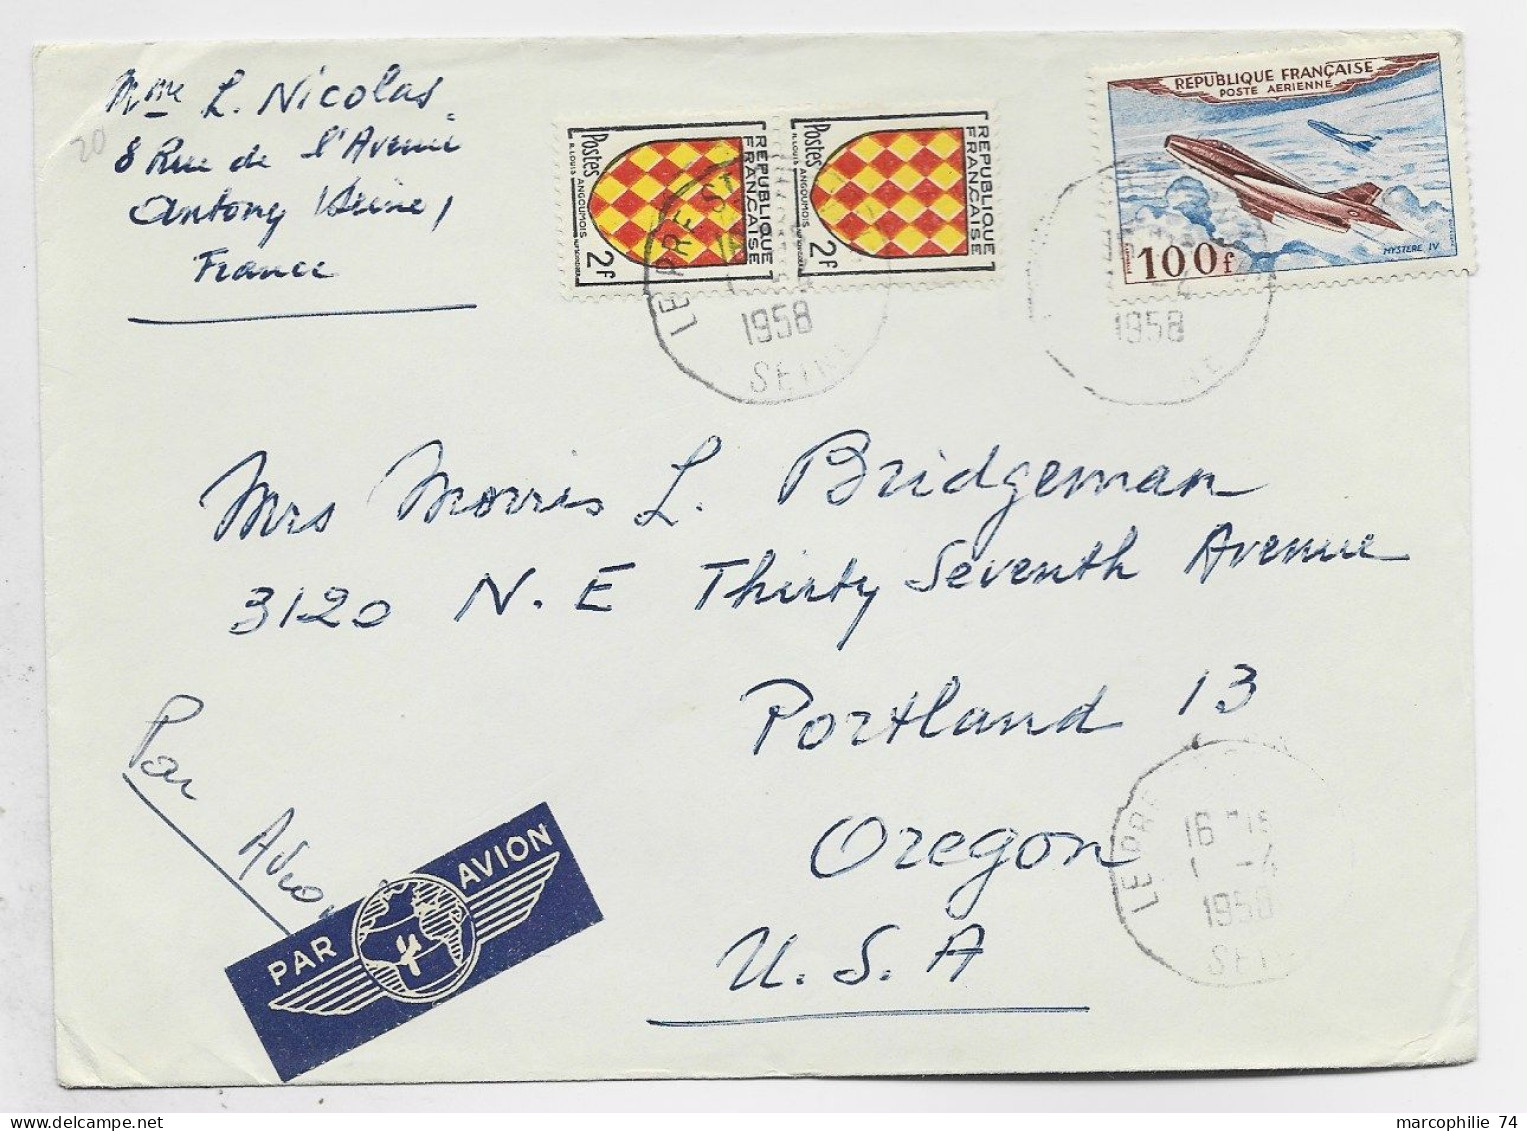 Mme L. Nicolas
8 Rue de l'Avenir
Antony (Seine)
France
20
REPUBLIQUE FRANÇAISE
Postes
R. LOUIS ANGOUMOIS
2f
REPUBLIQUE FRANÇAISE
Postes
R. LOUIS ANGOUMOIS
2f
REPUBLIQUE FRANÇAISE
POSTE AERIENNE
MYSTERE IV
100f
LE PRE ST
1958
SEINE
-4
1958
NE
Mrs Morris L. Bridgeman
3120 N.E Thirty Seventh Avenue
Portland 13
Oregon
U.S.A
Par Avion
PAR AVION
LE PRE
16
1 -4
1958
SEI
marcophilie 74